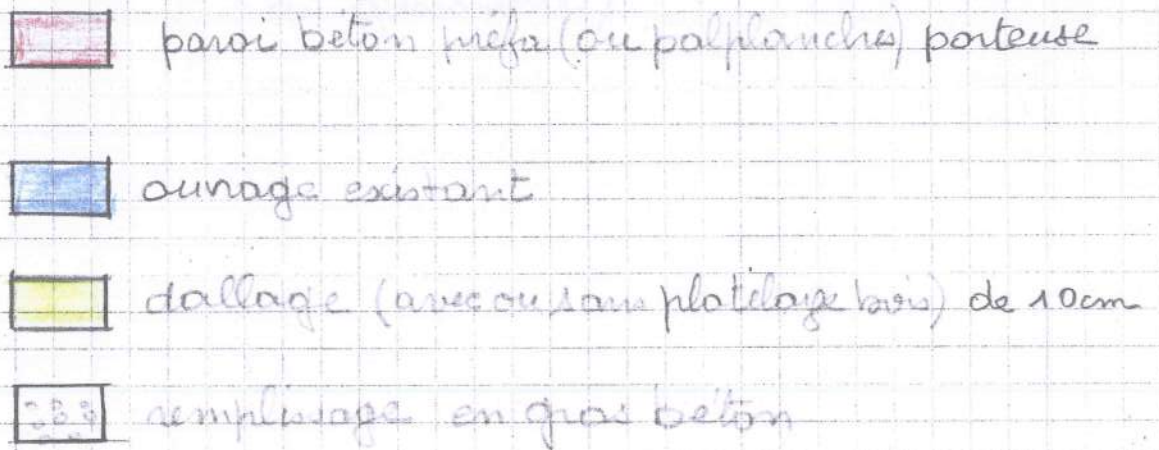 paroi béton préfa (ou palplanches) porteuse
ouvrage existant
dallage (avec ou sans platelage bois) de 10cm
remplissage en gros béton